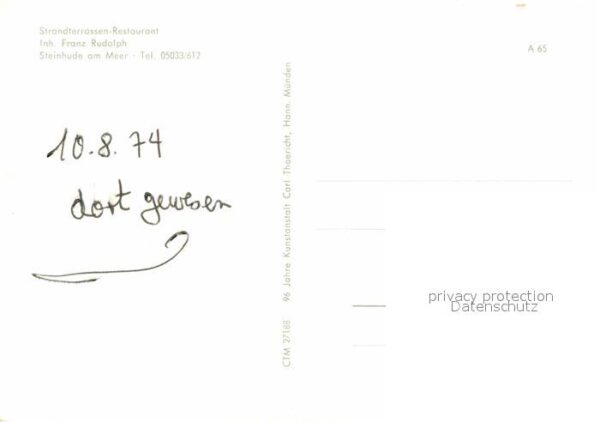 Strandterrassen-Restaurant
Inh. Franz Rudolph
Steinhude am Meer · Tel. 05033/612
A 65
10.8.74
dort gewesen
CTM 27188 96 Jahre Kunstanstalt Carl Thoericht, Hann. Münden
privacy protection
Datenschutz